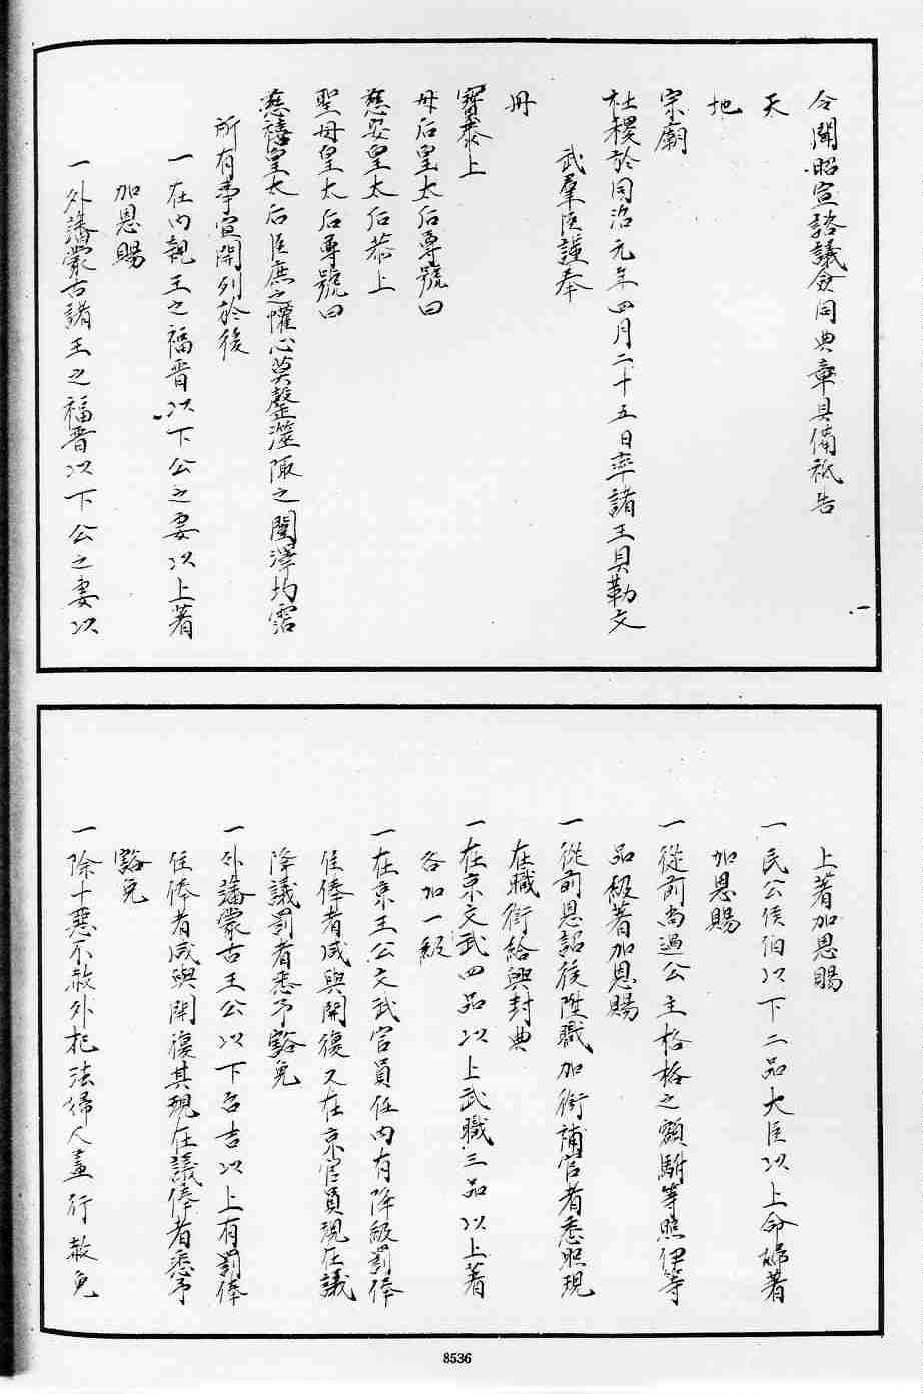 令聞昭宣諮議僉同典章具備祇告
天
地
宗廟
社稷於同治元年四月二十五日率諸王貝勒文
武羣臣謹奉
冊
寶恭上
母后皇太后尊號曰
慈安皇太后恭上
聖母皇太后尊號曰
慈禧皇太后臣庶之懽心莫罄瀛陬之闓澤均霑
所有事宜開列於後
一在內親王之福晋以下公之妻以上著
加恩賜
一外藩蒙古諸王之福晋以下公之妻以
上著加恩賜
一民公侯伯以下二品大臣以上命婦著
加恩賜
一從前尚過公主格格之額駙等照伊等
品級著加恩賜
一從前恩詔後陞職加銜補官者悉照現
在職銜給與封典
一在京文武四品以上武職三品以上著
各加一級
一在京王公文武官員任內有降級罰俸
住俸者咸與開復又在京官員現在議
降議罰者悉予豁免
一外藩蒙古王公以下台吉以上有罰俸
住俸者咸與開復其現在議俸者悉予
豁免
一除十惡不赦外犯法婦人盡行赦免
8536